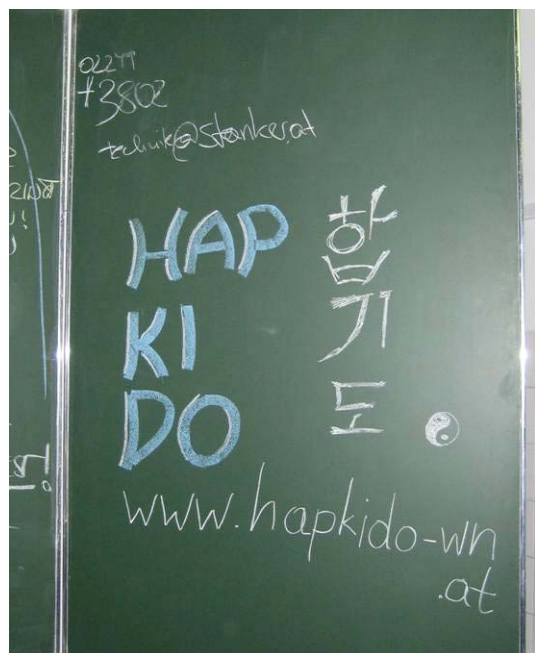 +3802
technik@stanker.at
HAP
KI
DO
합
기
도
www.hapkido-wn
.at